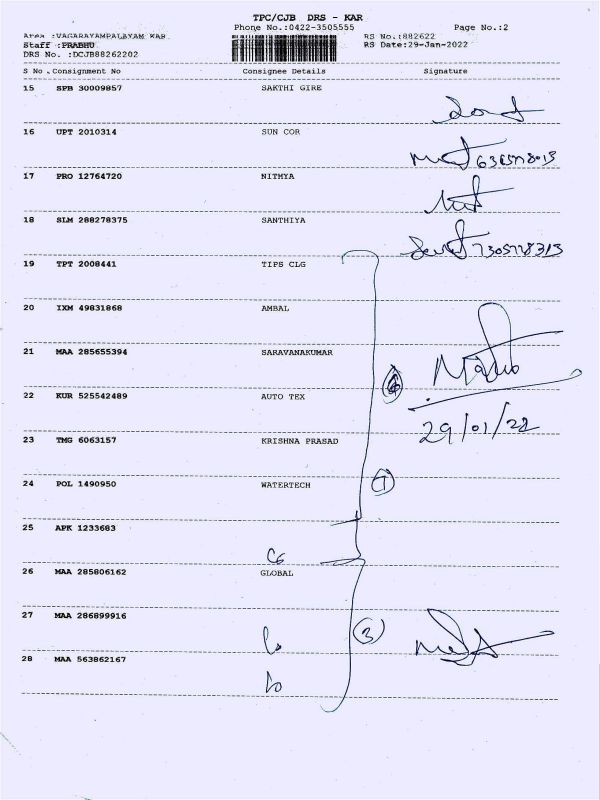 TPC/CJB DRS - KAR
Phone No.:0422-3505555 Page No.:2
Area :VAGARAYAMPALAYAM KAR RS No.:882622
Staff :PRABHU RS Date:29-Jan-2022
DRS No. :DCJB88262202
S No. Consignment No Consignee Details Signature
15 SPB 30009857 SAKTHI GIRE
16 UPT 2010314 SUN COR
17 PRO 12764720 NITHYA
18 SLM 288278375 SANTHIYA
7305778313
19 TPT 2008441 TIPS CLG
20 IXM 49831868 AMBAL
21 MAA 285655394 SARAVANAKUMAR
22 KUR 525542489 AUTO TEX
29/01/22
23 TMG 6063157 KRISHNA PRASAD
24 POL 1490950 WATERTECH
25 APK 1233683
26 MAA 285806162 GLOBAL
27 MAA 286899916
3
28 MAA 563862167